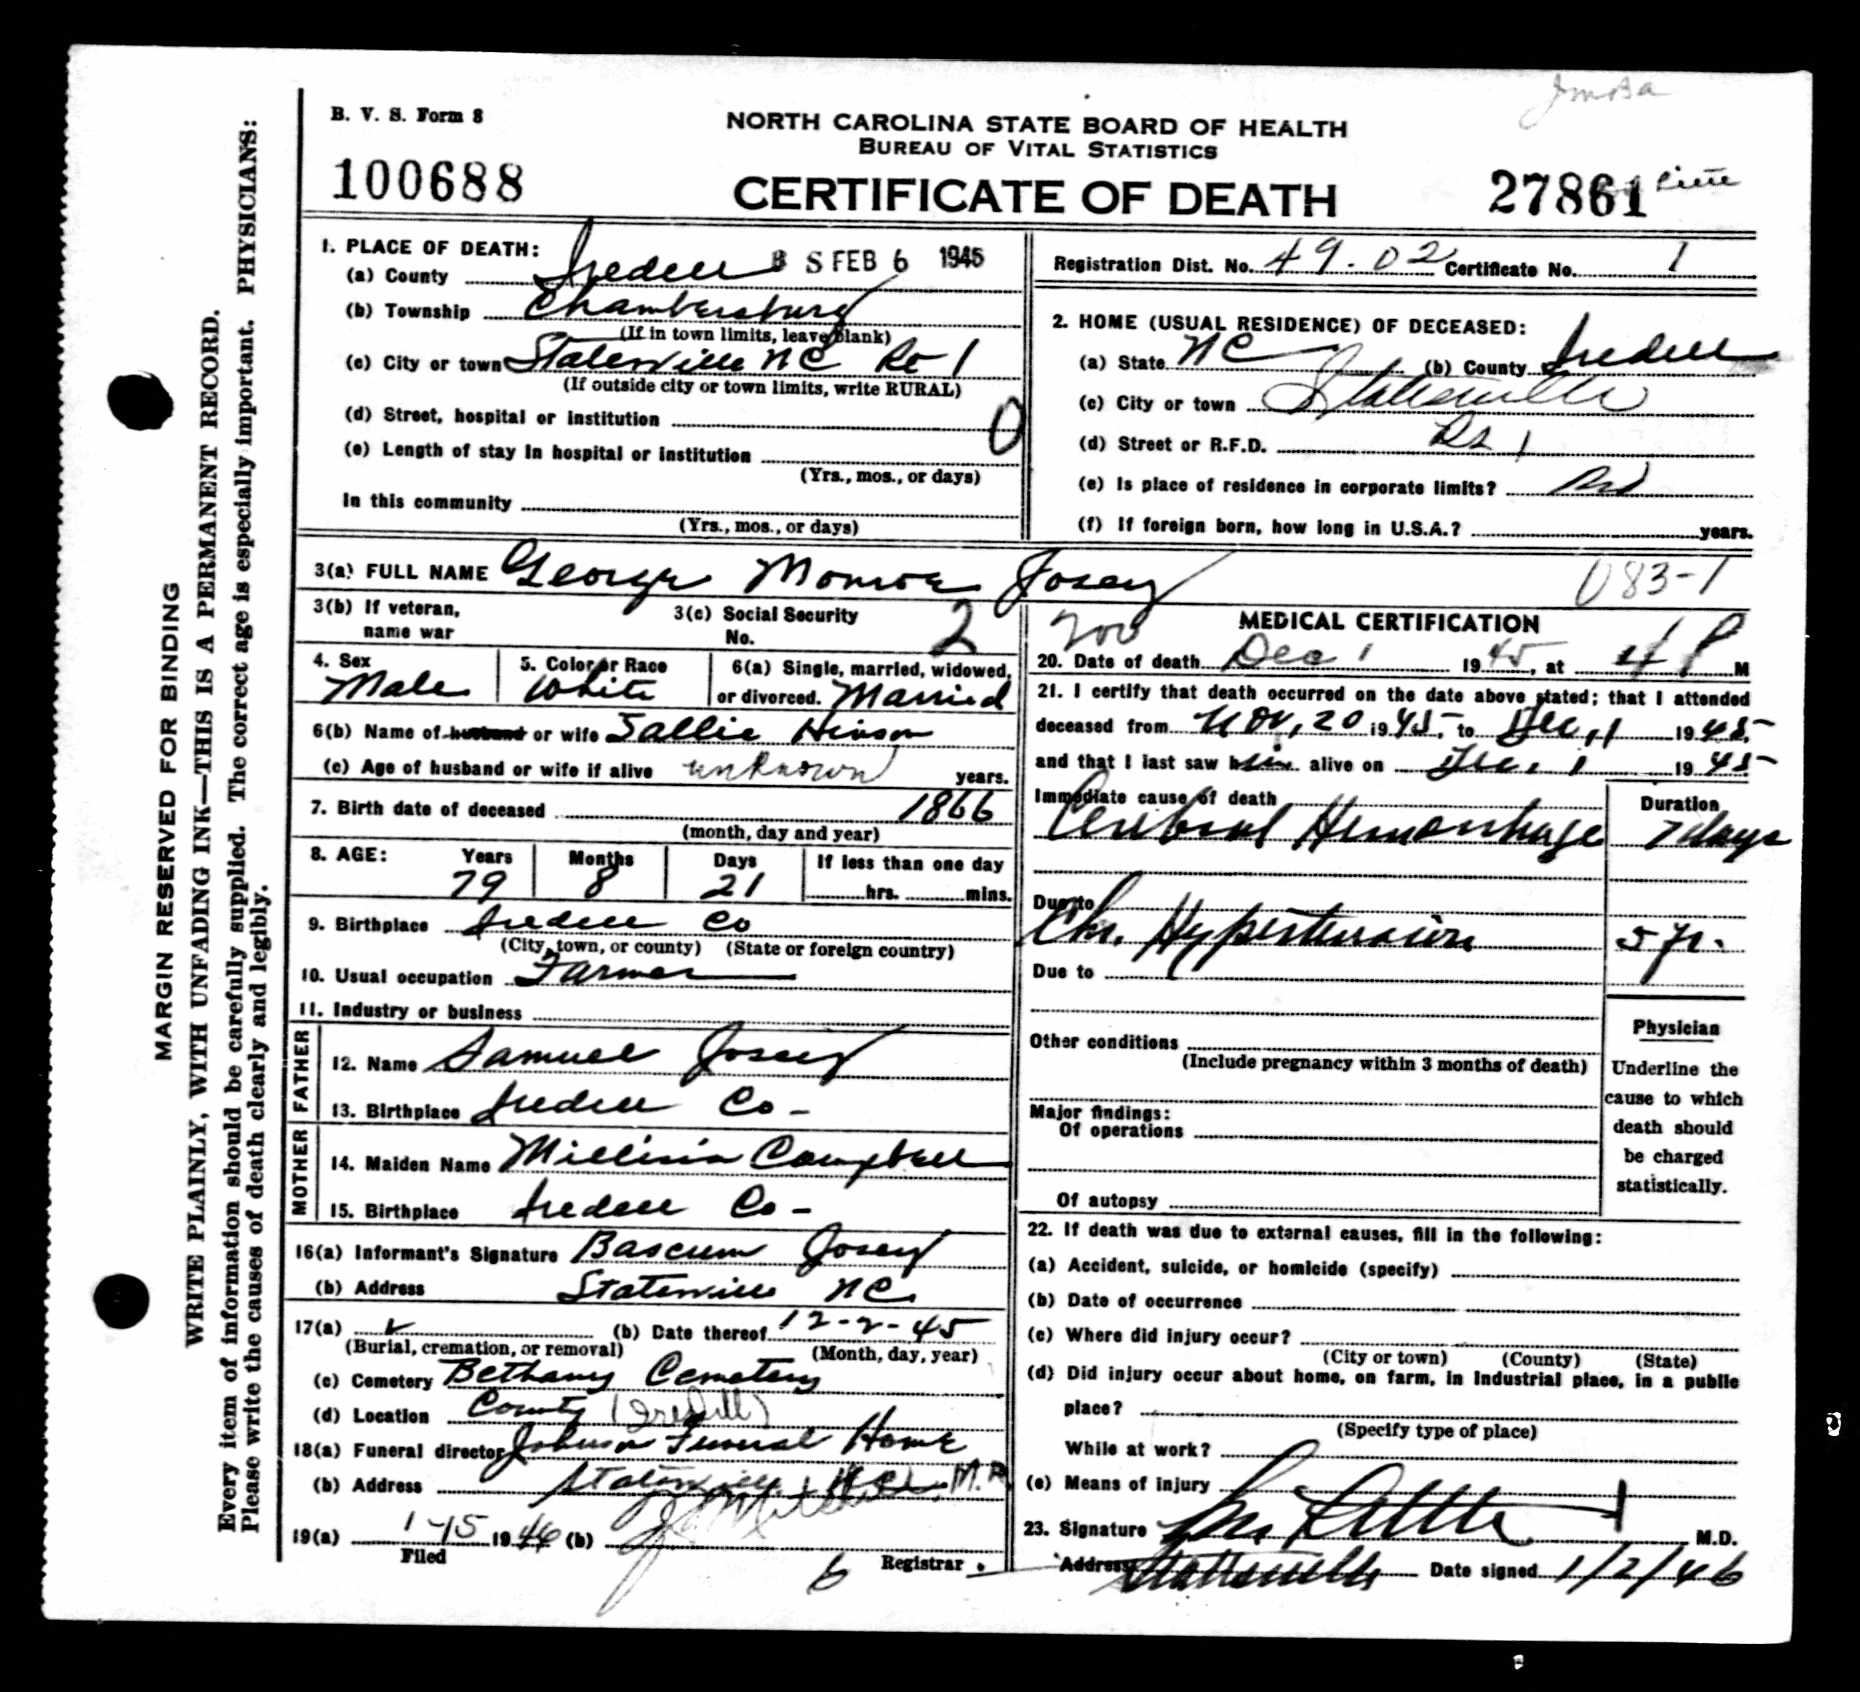 B. V. S. Form 8
NORTH CAROLINA STATE BOARD OF HEALTH
BUREAU OF VITAL STATISTICS
100688
CERTIFICATE OF DEATH
27861
MARGIN RESERVED FOR BINDING
WRITE PLAINLY, WITH UNFADING INK—THIS IS A PERMANENT RECORD.
Every item of information should be carefully supplied. The correct age is especially important. PHYSICIANS:
Please write the causes of death clearly and legibly.
1. PLACE OF DEATH:
(a) County Iredell
S FEB 6 1945
(b) Township Chambersburg
(If in town limits, leave blank)
(c) City or town Statesville NC Ro 1
(If outside city or town limits, write RURAL)
(d) Street, hospital or institution
0
(e) Length of stay in hospital or institution
(Yrs., mos., or days)
In this community
(Yrs., mos., or days)
Registration Dist. No. 49-02 Certificate No. 1
2. HOME (USUAL RESIDENCE) OF DECEASED:
(a) State NC (b) County Iredell
(c) City or town Statesville
(d) Street or R.F.D. 1
(e) Is place of residence in corporate limits?
(f) If foreign born, how long in U.S.A.? years.
3(a) FULL NAME George Monroe Josey
083-1
3(b) If veteran, name war
3(c) Social Security No.
2
4. Sex Male
5. Color or Race White
6(a) Single, married, widowed, or divorced. Married
6(b) Name of husband or wife Sallie Hinson
(c) Age of husband or wife if alive unknown years.
7. Birth date of deceased 1866
(month, day and year)
8. AGE: Years 79 Months 8 Days 21 If less than one day hrs. mins.
9. Birthplace Iredell Co
(City, town, or county) (State or foreign country)
10. Usual occupation Farmer
11. Industry or business
FATHER
12. Name Samuel Josey
13. Birthplace Iredell Co -
MOTHER
14. Maiden Name Millisia Campbell
15. Birthplace Iredell Co -
16(a) Informant's Signature Bascum Josey
(b) Address Statesville NC
17(a) (b) Date thereof 12-2-45
(Burial, cremation, or removal) (Month, day, year)
(c) Cemetery Bethany Cemetery
(d) Location County (Iredell)
18(a) Funeral director Johnson Funeral Home
(b) Address Statesville
19(a) 1-15 1946 (b)
Filed
Registrar
6
MEDICAL CERTIFICATION
20. Date of death Dec 1 1945, at 4 P M
21. I certify that death occurred on the date above stated; that I attended
deceased from Nov, 20 1945, to Dec, 1 1945
and that I last saw him alive on Dec. 1 1945
Immediate cause of death
Duration
Cerebral Hemorrhage 7 days
Due to
Chr. Hypertension 5 yr.
Due to
Other conditions
(Include pregnancy within 3 months of death)
Major findings:
Of operations
Of autopsy
Physician
Underline the
cause to which
death should
be charged
statistically.
22. If death was due to external causes, fill in the following:
(a) Accident, suicide, or homicide (specify)
(b) Date of occurrence
(c) Where did injury occur?
(City or town) (County) (State)
(d) Did injury occur about home, on farm, in industrial place, in a public
place?
(Specify type of place)
While at work?
(e) Means of injury
23. Signature M.D.
Address Statesville Date signed 1/2/46